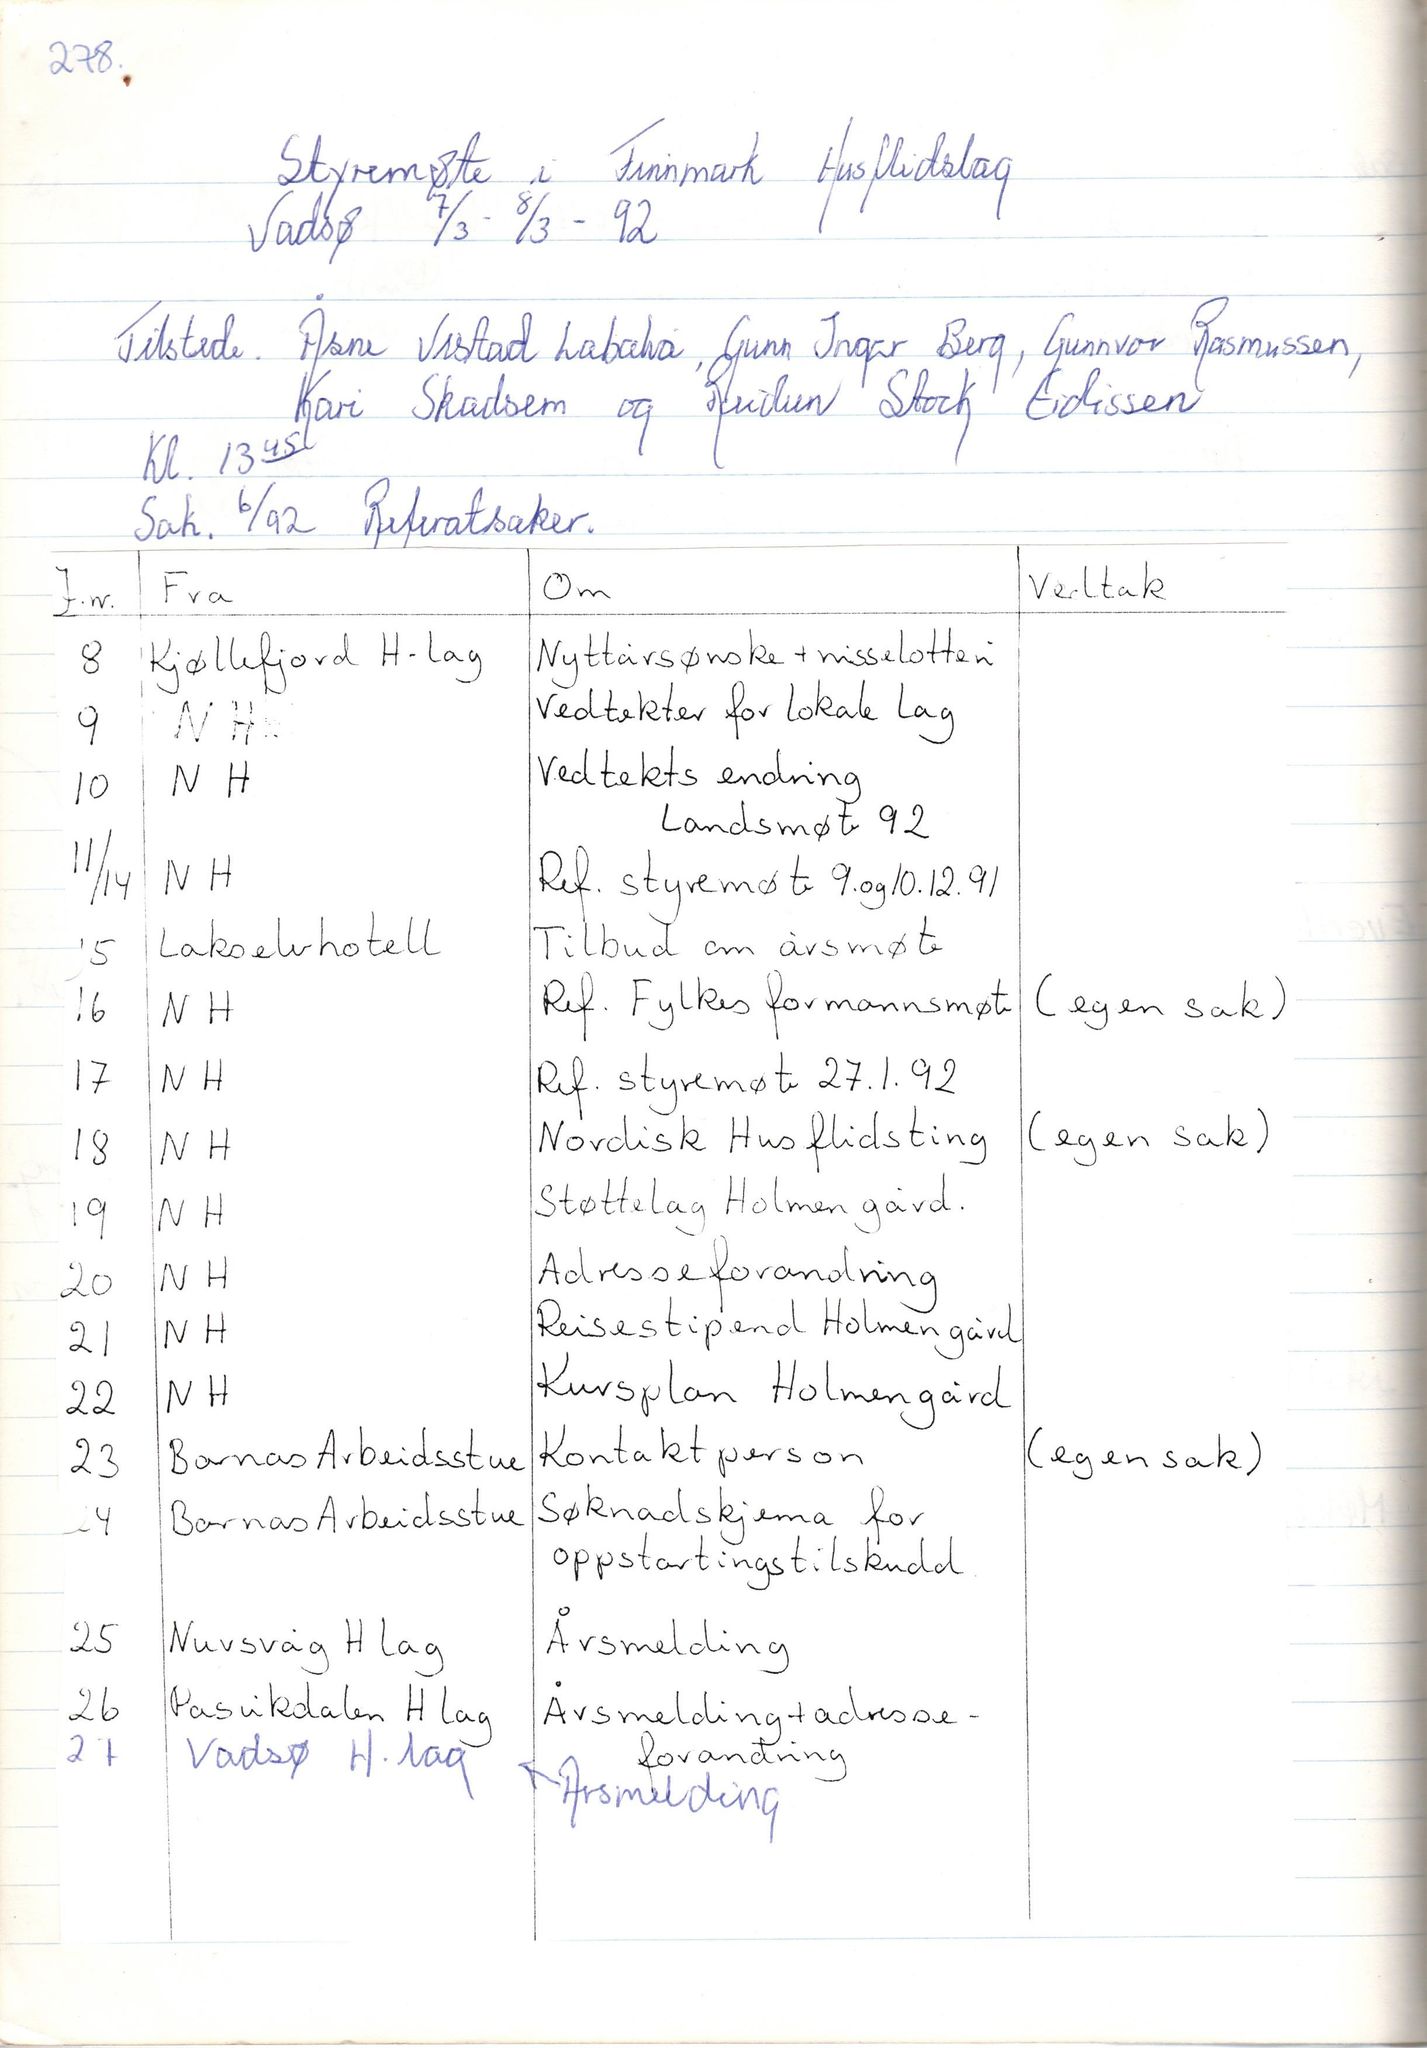 278.
Styremøte i Finnmark Husflidslag
Vadsø 7/3 - 8/3 - 92
Tilstede. Åsne Vistad Labahå, Gunn Inger Berg, Gunnvor Rasmussen,
Kari Skadsem og Reidun Stock Eidissen
Kl. 13 45
Sak. 6/92 Referatsaker.
J.nr. Fra Om Vedtak
8 Kjøllefjord H-lag Nyttårsønske + nisselotteri
9 N H Vedtekter for lokale lag
10 N H Vedtekts endring
Landsmøte 92
11/14 N H Ref. styremøte 9.og10.12.91
15 Lakselvhotell Tilbud om årsmøte
16 N H Ref. Fylkesformannsmøte (egen sak)
17 N H Ref. styremøte 27.1.92
18 N H Nordisk Husflidsting (egen sak)
19 N H Støttelag Holmen gård.
20 N H Adresseforandring
21 N H Reisestipend Holmengård
22 N H Kursplan Holmengård
23 Barnas Arbeidsstue Kontaktperson (egen sak)
24 Barnas Arbeidsstue Søknadskjema for
oppstartingstilskudd
25 Nuvsvåg H lag Årsmelding
26 Pasvikdalen H lag Årsmelding + adresse-
forandring
27 Vadsø H. lag Årsmelding